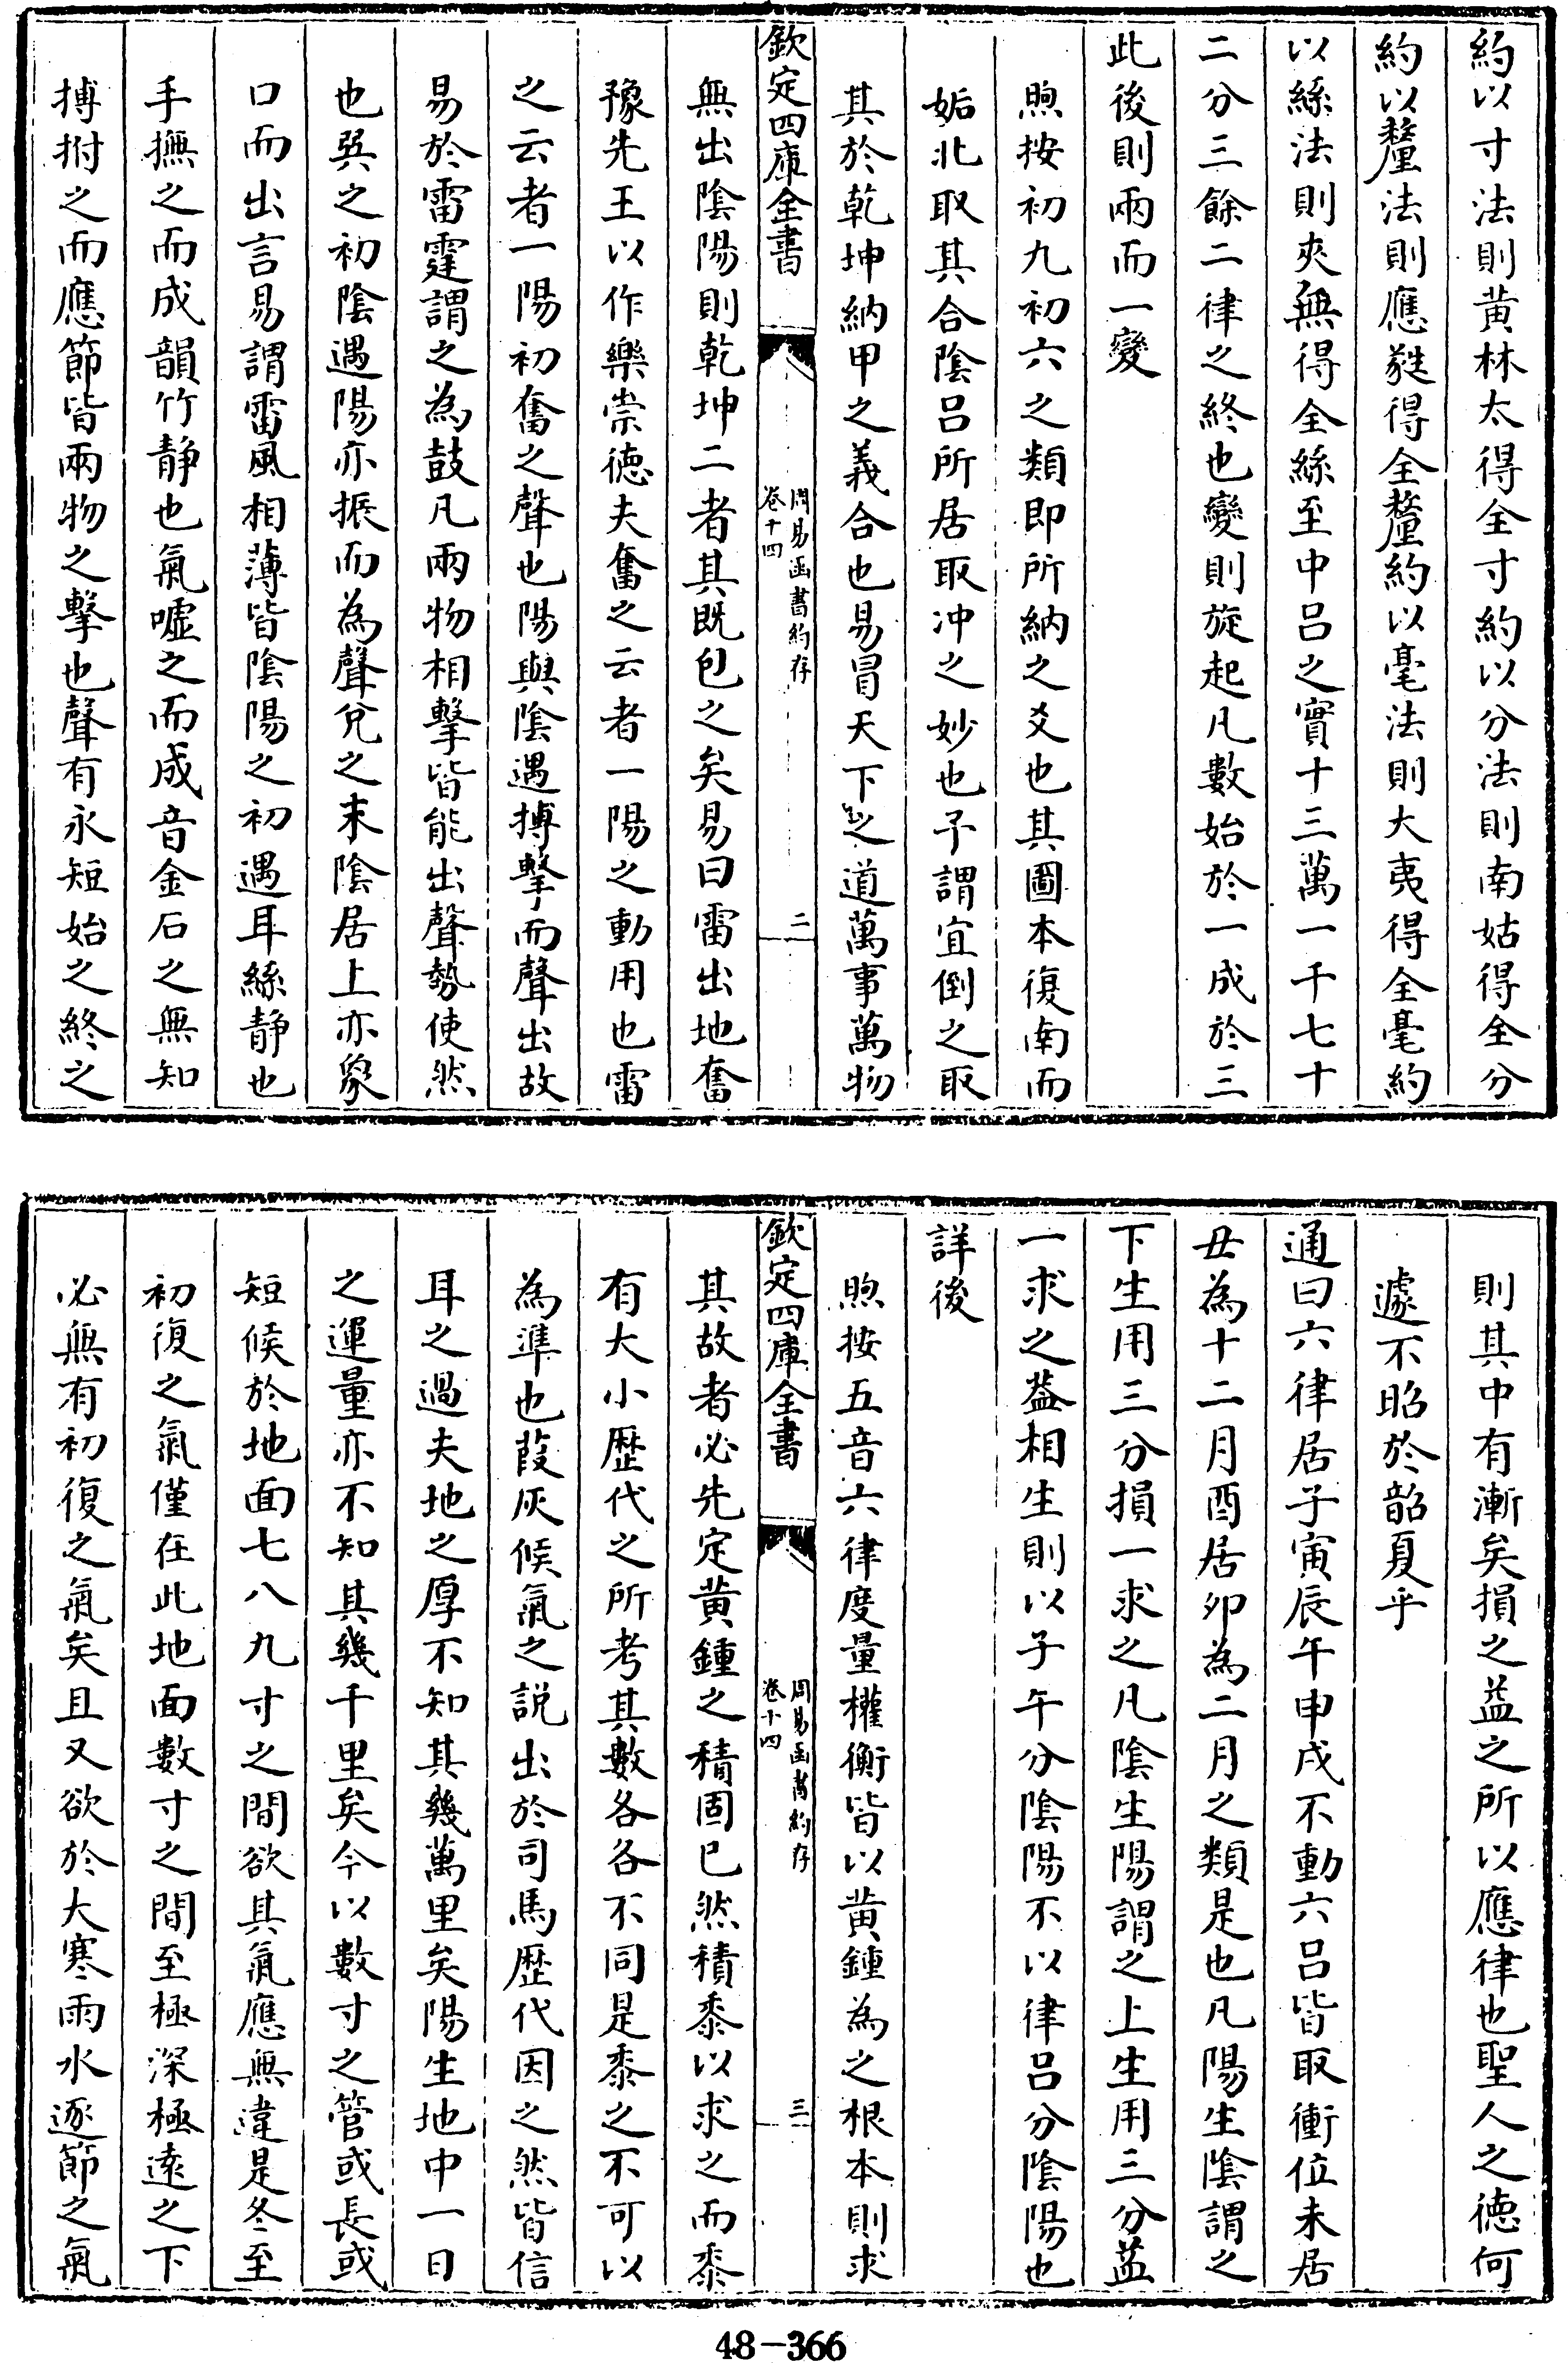 約以寸法則黄林太得全寸約以分法則南姑得全分
約以釐法則應蕤得全釐約以毫法則大夷得全毫約
以絲法則夾無得全絲至中吕之實十三萬一千七十
二分三餘二律之終也變則旋起凡數始於一成於三
此後則兩而一變
煦按初九初六之類即所納之爻也其圖本復南而
姤北取其合陰吕所居取冲之妙也予謂宜倒之取
其於乾坤納甲之義合也易冒天下之道萬事萬物
欽定四庫全書
周易函書約存
卷十四
二
無出陰陽則乾坤二者其既包之矣易曰雷出地奮
豫先王以作樂崇德夫奮之云者一陽之動用也雷
之云者一陽初奮之聲也陽與陰遇搏擊而聲出故
易於雷霆謂之為鼓凡兩物相擊皆能出聲勢使然
也巽之初陰遇陽亦振而為聲兌之末陰居上亦象
口而出言易謂雷風相薄皆陰陽之初遇耳絲静也
手撫之而成韻竹静也氣噓之而成音金石之無知
搏拊之而應節皆兩物之擊也聲有永短始之終之
則其中有漸矣損之益之所以應律也聖人之德何
遽不昭於韶夏乎
通曰六律居子寅辰午申戌不動六吕皆取衝位未居
丑為十二月酉居卯為二月之類是也凡陽生陰謂之
下生用三分損一求之凡陰生陽謂之上生用三分益
一求之葢相生則以子午分陰陽不以律吕分陰陽也
詳後
煦按五音六律度量權衡皆以黄鍾為之根本則求
欽定四庫全書
周易函書約存
卷十四
三
其故者必先定黄鍾之積固已然積黍以求之而黍
有大小歷代之所考其數各各不同是黍之不可以
為準也葭灰候氣之説出於司馬歷代因之然皆信
耳之過夫地之厚不知其幾萬里矣陽生地中一日
之運量亦不知其幾千里矣今以數寸之管或長或
短候於地面七八九寸之間欲其氣應無違是冬至
初復之氣僅在此地面數寸之間至極深極遠之下
必無有初復之氣矣且又欲於大寒雨水逐節之氣
48-366